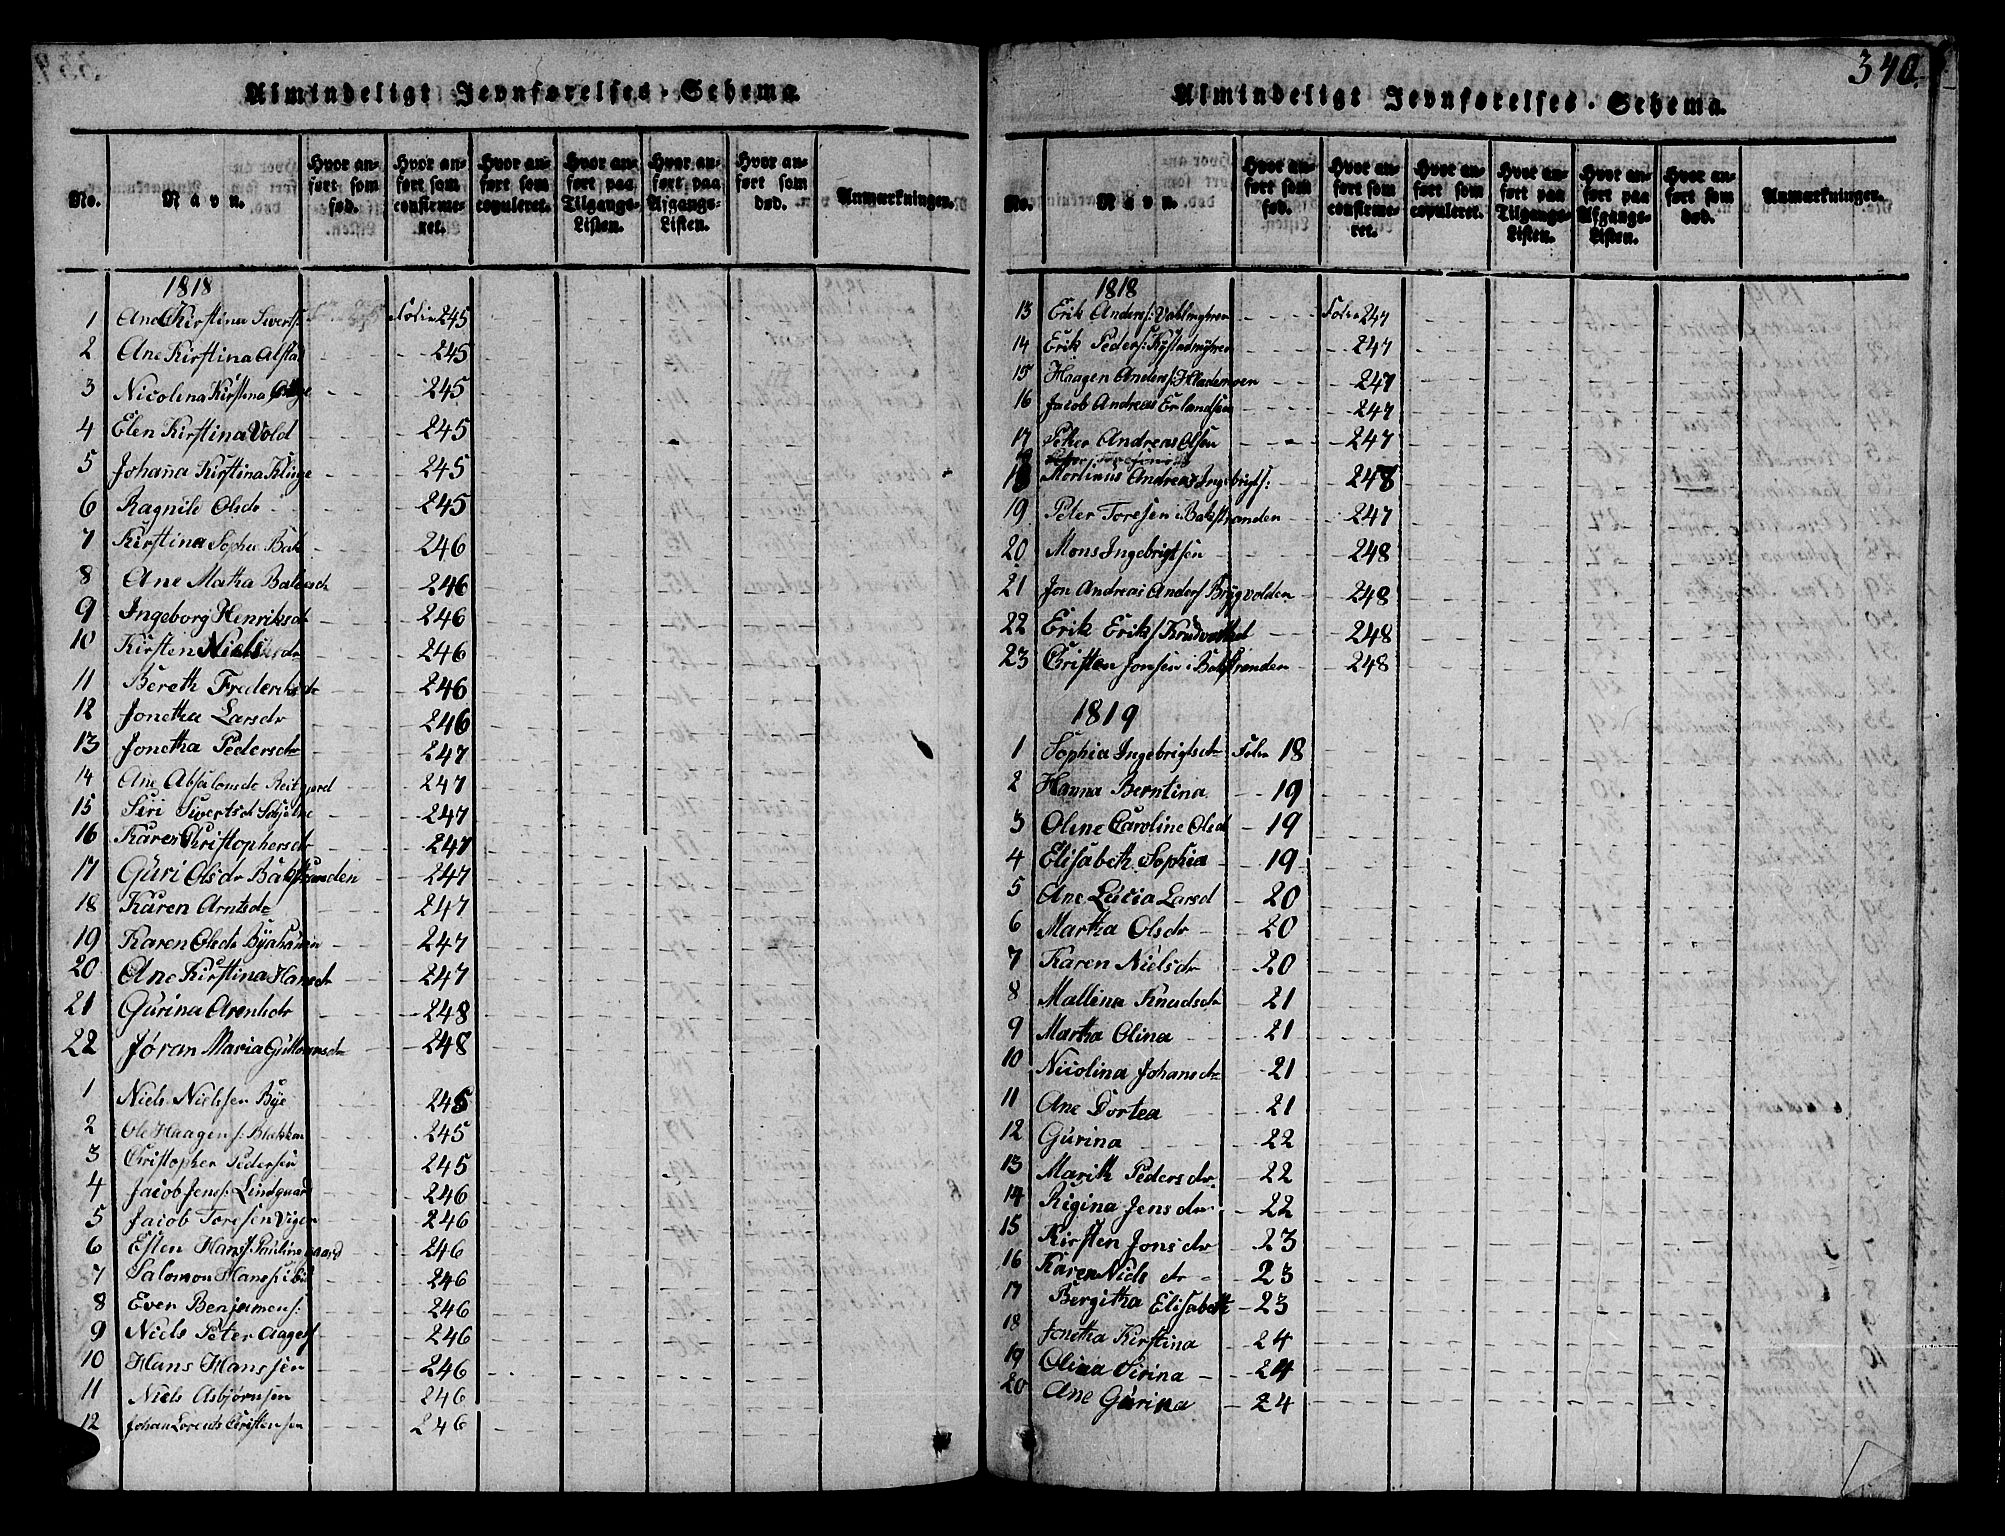 Almindeligt Jevnførelses-Schema.
No.
Navn.
Hvor anført som fød.
Hvor anført som confirmeret.
Hvor anført som copuleret.
Hvor anført paa Tilgangs-Listen.
Hvor anført paa Afgangs-Listen.
Hvor anført som død.
Anmærkninger.
1818
1 Ane Kirstina Siverts: Folio 245
2 Ane Kirstina Alstad 245
3 Nicolina Kirstina 245
4 Elen Kirstina Vold 245
5 Johana Kirstina Kluge 245
6 Ragnile Olsdr 245
7 Kirstina Sophia Bak 246
8 Ane Matha 246
9 Ingeborg Henriksdr 246
10 Kirsten Nielsdr 246
11 Bereth Frederiksdr 246
12 Jonetha Larsdr 246
13 Jonetha Pedersdr 247
14 Ane Absalomsdr Reitgierd 247
15 Siri Sivertsd 247
16 Karen Christophersdr 247
17 Guri Olsdr Bakstranden 247
18 Karen Arntsdr 247
19 Karen Olsdr 247
20 Ane Kirstina Hansdr 247
21 Gurina Arentsdr 248
22 Jøran Maria 248
1 Niels Nielssen Bye 245
2 Ole Haagens: Blakkan 245
3 Christopher Pedersen 245
4 Jacob Jens: Lindgaard 246
5 Jacob Toresen Vigen 246
6 Esten Hans: Paulinegaard 246
7 Salomon Hans: 246
8 Even Benjamens: 246
9 Niels Peter Aages: 246
10 Hans Hanssen 246
11 Niels Asbjørnsen 246
12 Johan Lorents Christensen 246
340.
Almindeligt Jevnførelses-Schema.
No.
Navn.
Hvor anført som fød.
Hvor anført som confirmeret.
Hvor anført som copuleret.
Hvor anført paa Tilgangs-Listen.
Hvor anført paa Afgangs-Listen.
Hvor anført som død.
Anmærkninger.
1818
13 Erik Anders: Folio 247
14 Erik Peders: 247
15 Haagen Anders: Hlademoen 247
16 Jacob Andreas Erlandsen 247
17 Peter Andreas Olsen 247
18 Mortinus Andreas Ingebrigts: 248
19 Peter Toresen i Bakstranden 247
20 Mons Ingebrigtsen 248
21 Jon Andreas Anders: Brygvolden 248
22 Erik Eriks: 248
23 Christen Jonsen i Bakstranden 248
1819
1 Sophia Ingebrigtsdr Folio 18
2 Hanna Berntina 19
3 Oline Caroline Olsd 19
4 Elisabeth Sophia 19
5 Ane Lucia Larsd 20
6 Martha Olsdr 20
7 Karen Nielsdr 20
8 Mallena Knudsdr 21
9 Martha Olina 21
10 Nicolina Johansdr 21
11 Ane Dortea 21
12 Gurina 22
13 Marith Pedersdr 22
14 Rigina Jensdr 22
15 Kirsten Jonsdr 23
16 Karen Nielsdr 23
17 Bergitha Elisabeth 23
18 Jonetha Kirstina 24
19 Olina Sirina 24
20 Ane Gurina 24